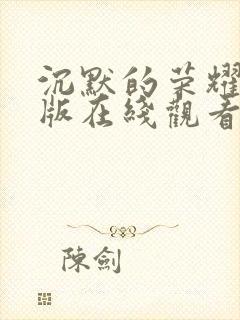 沉默的荣耀
版在綫觀看
陳劍